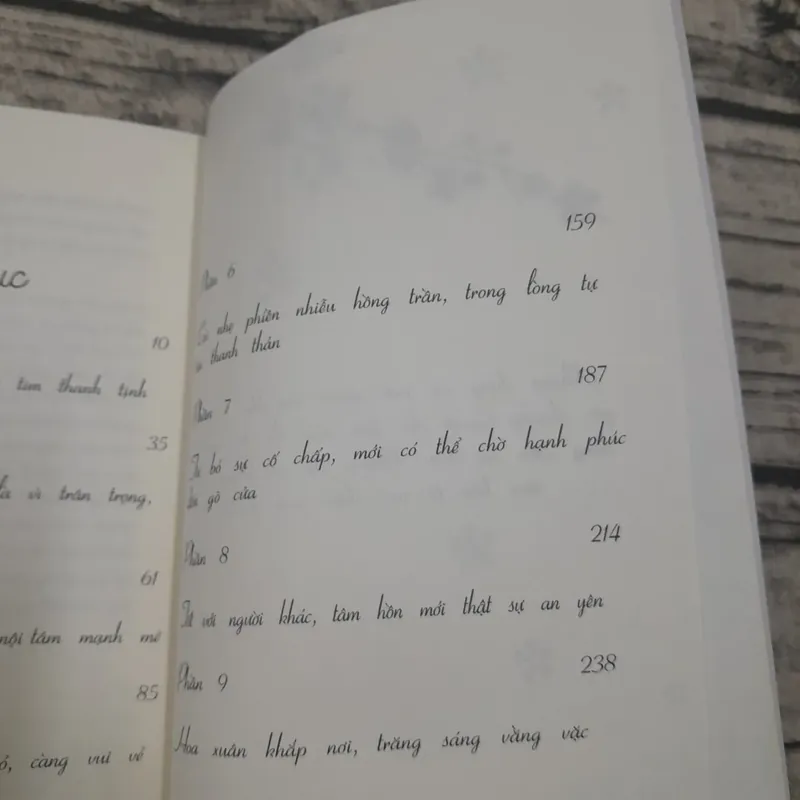 ục
10
tâm thanh tịnh
35
là vì trân trọng,
61
nội tâm mạnh mẽ
85
càng vui vẻ
159
Phần 6
nhẹ phiền nhiễu hồng trần, trong lòng tự
thanh thản
187
Phần 7
Từ bỏ sự cố chấp, mới có thể chờ hạnh phúc
gõ cửa
214
Phần 8
Tốt với người khác, tâm hồn mới thật sự an yên
238
Phần 9
Hoa xuân khắp nơi, trăng sáng vằng vặc